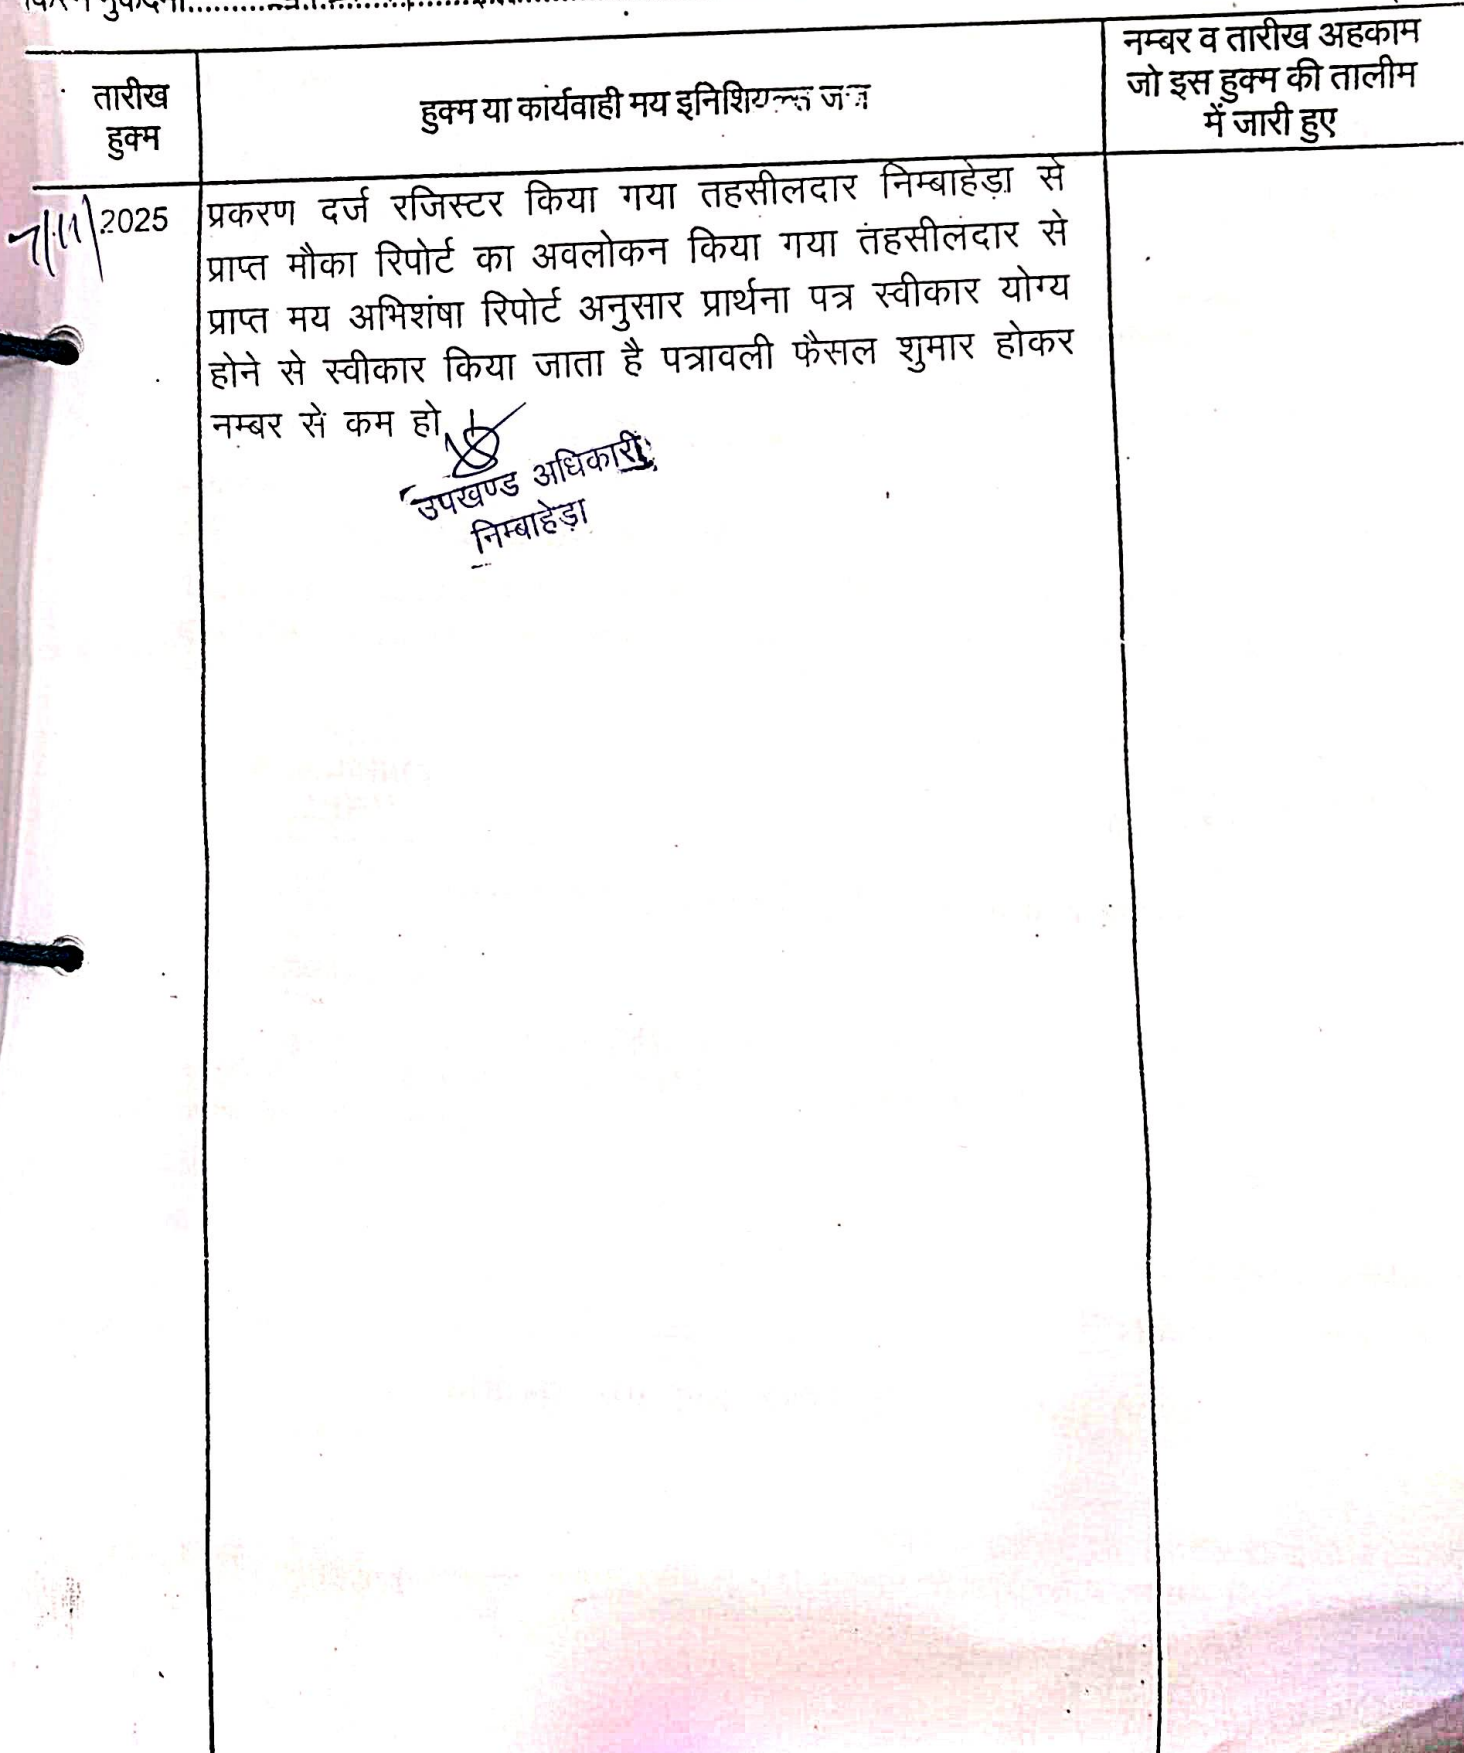 तारीख
हुक्म
हुक्म या कार्यवाही मय इनिशियल्स जज
नम्बर व तारीख अहकाम
जो इस हुक्म की तालीम
में जारी हुए
7/11/2025
प्रकरण दर्ज रजिस्टर किया गया तहसीलदार निम्बाहेड़ा से
प्राप्त मौका रिपोर्ट का अवलोकन किया गया तहसीलदार से
प्राप्त मय अभिशंषा रिपोर्ट अनुसार प्रार्थना पत्र स्वीकार योग्य
होने से स्वीकार किया जाता है पत्रावली फैसल शुमार होकर
नम्बर से कम हो
उपखण्ड अधिकारी
निम्बाहेड़ा